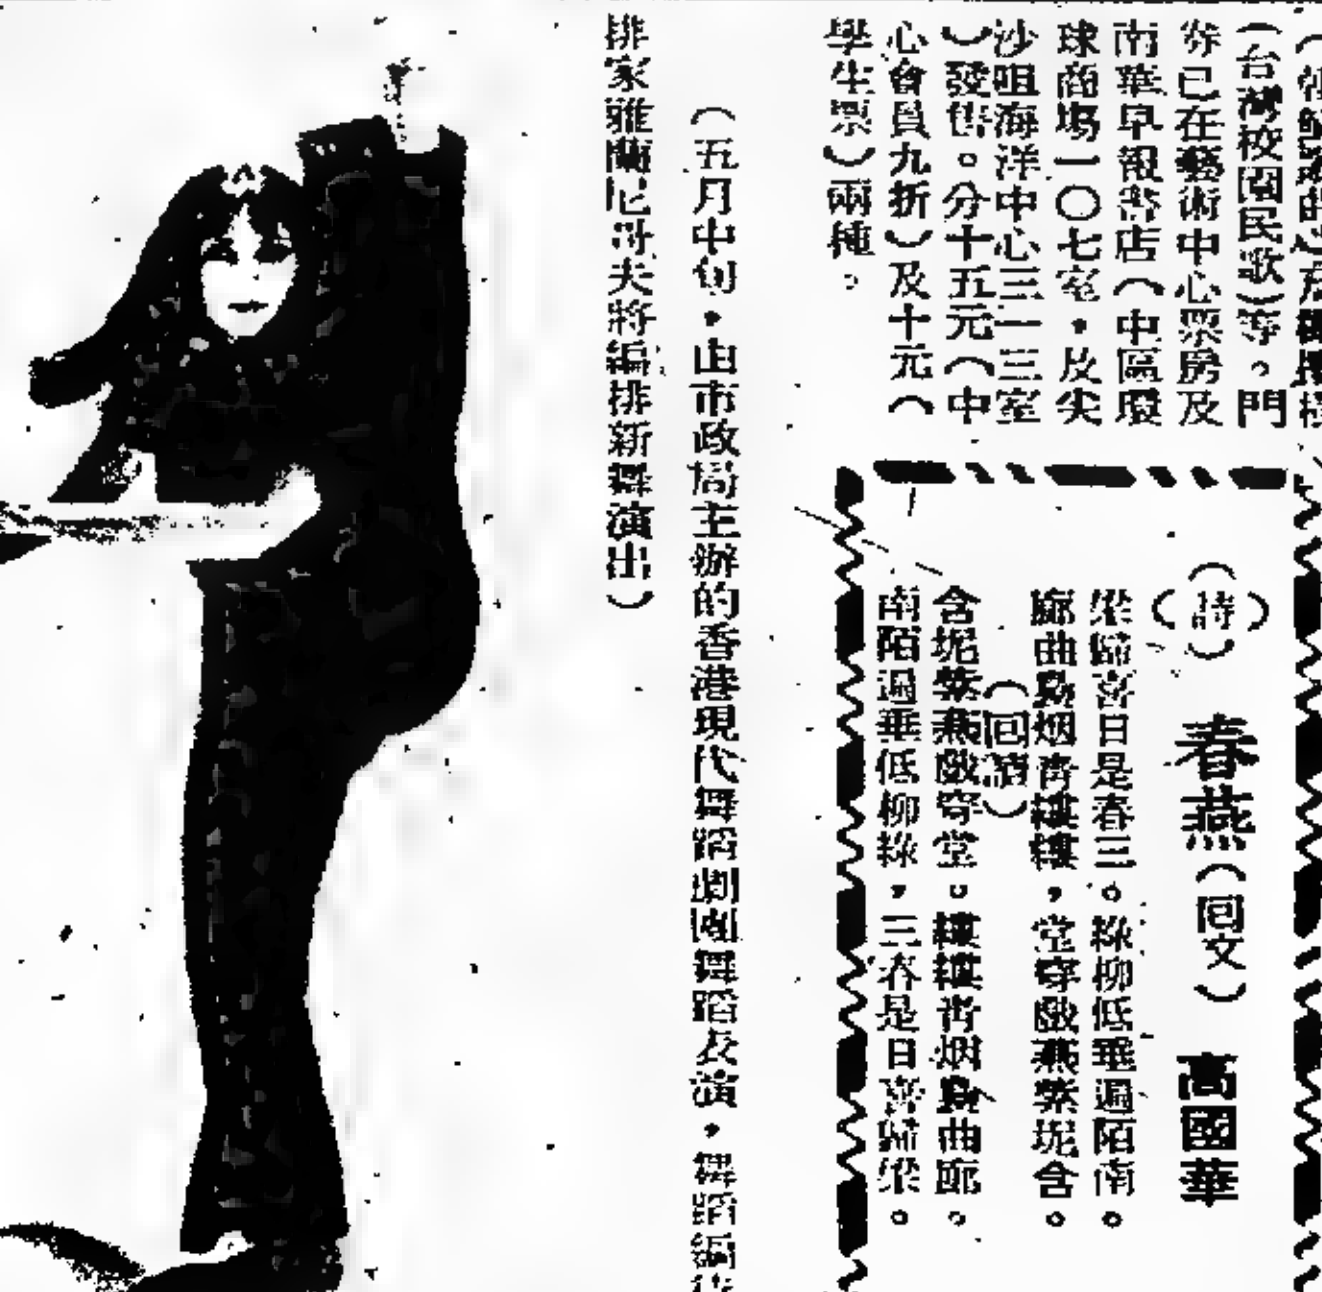 （台灣校園民歌）等。門
券已在藝術中心票房及
南華早報書店（中區環
球商場一〇七室，及尖
沙咀海洋中心三一三室
）發售。分十五元（中
心會員九折）及十元（
學生票）兩種。
（詩）
春燕（回文）　高國華
梁歸喜日是春三。綠柳低垂過陌南。
廊曲鳥烟青樓樓，堂穿戲燕紫坭含。
（回讀）
含坭紫燕戲穿堂。樓樓青烟鳥曲廊。
南陌過垂低柳綠，三春是日喜歸梁。
（五月中旬，由市政局主辦的香港現代舞蹈劇團舞蹈表演，舞蹈編
排家雅蘭尼哥夫將編排新舞演出）